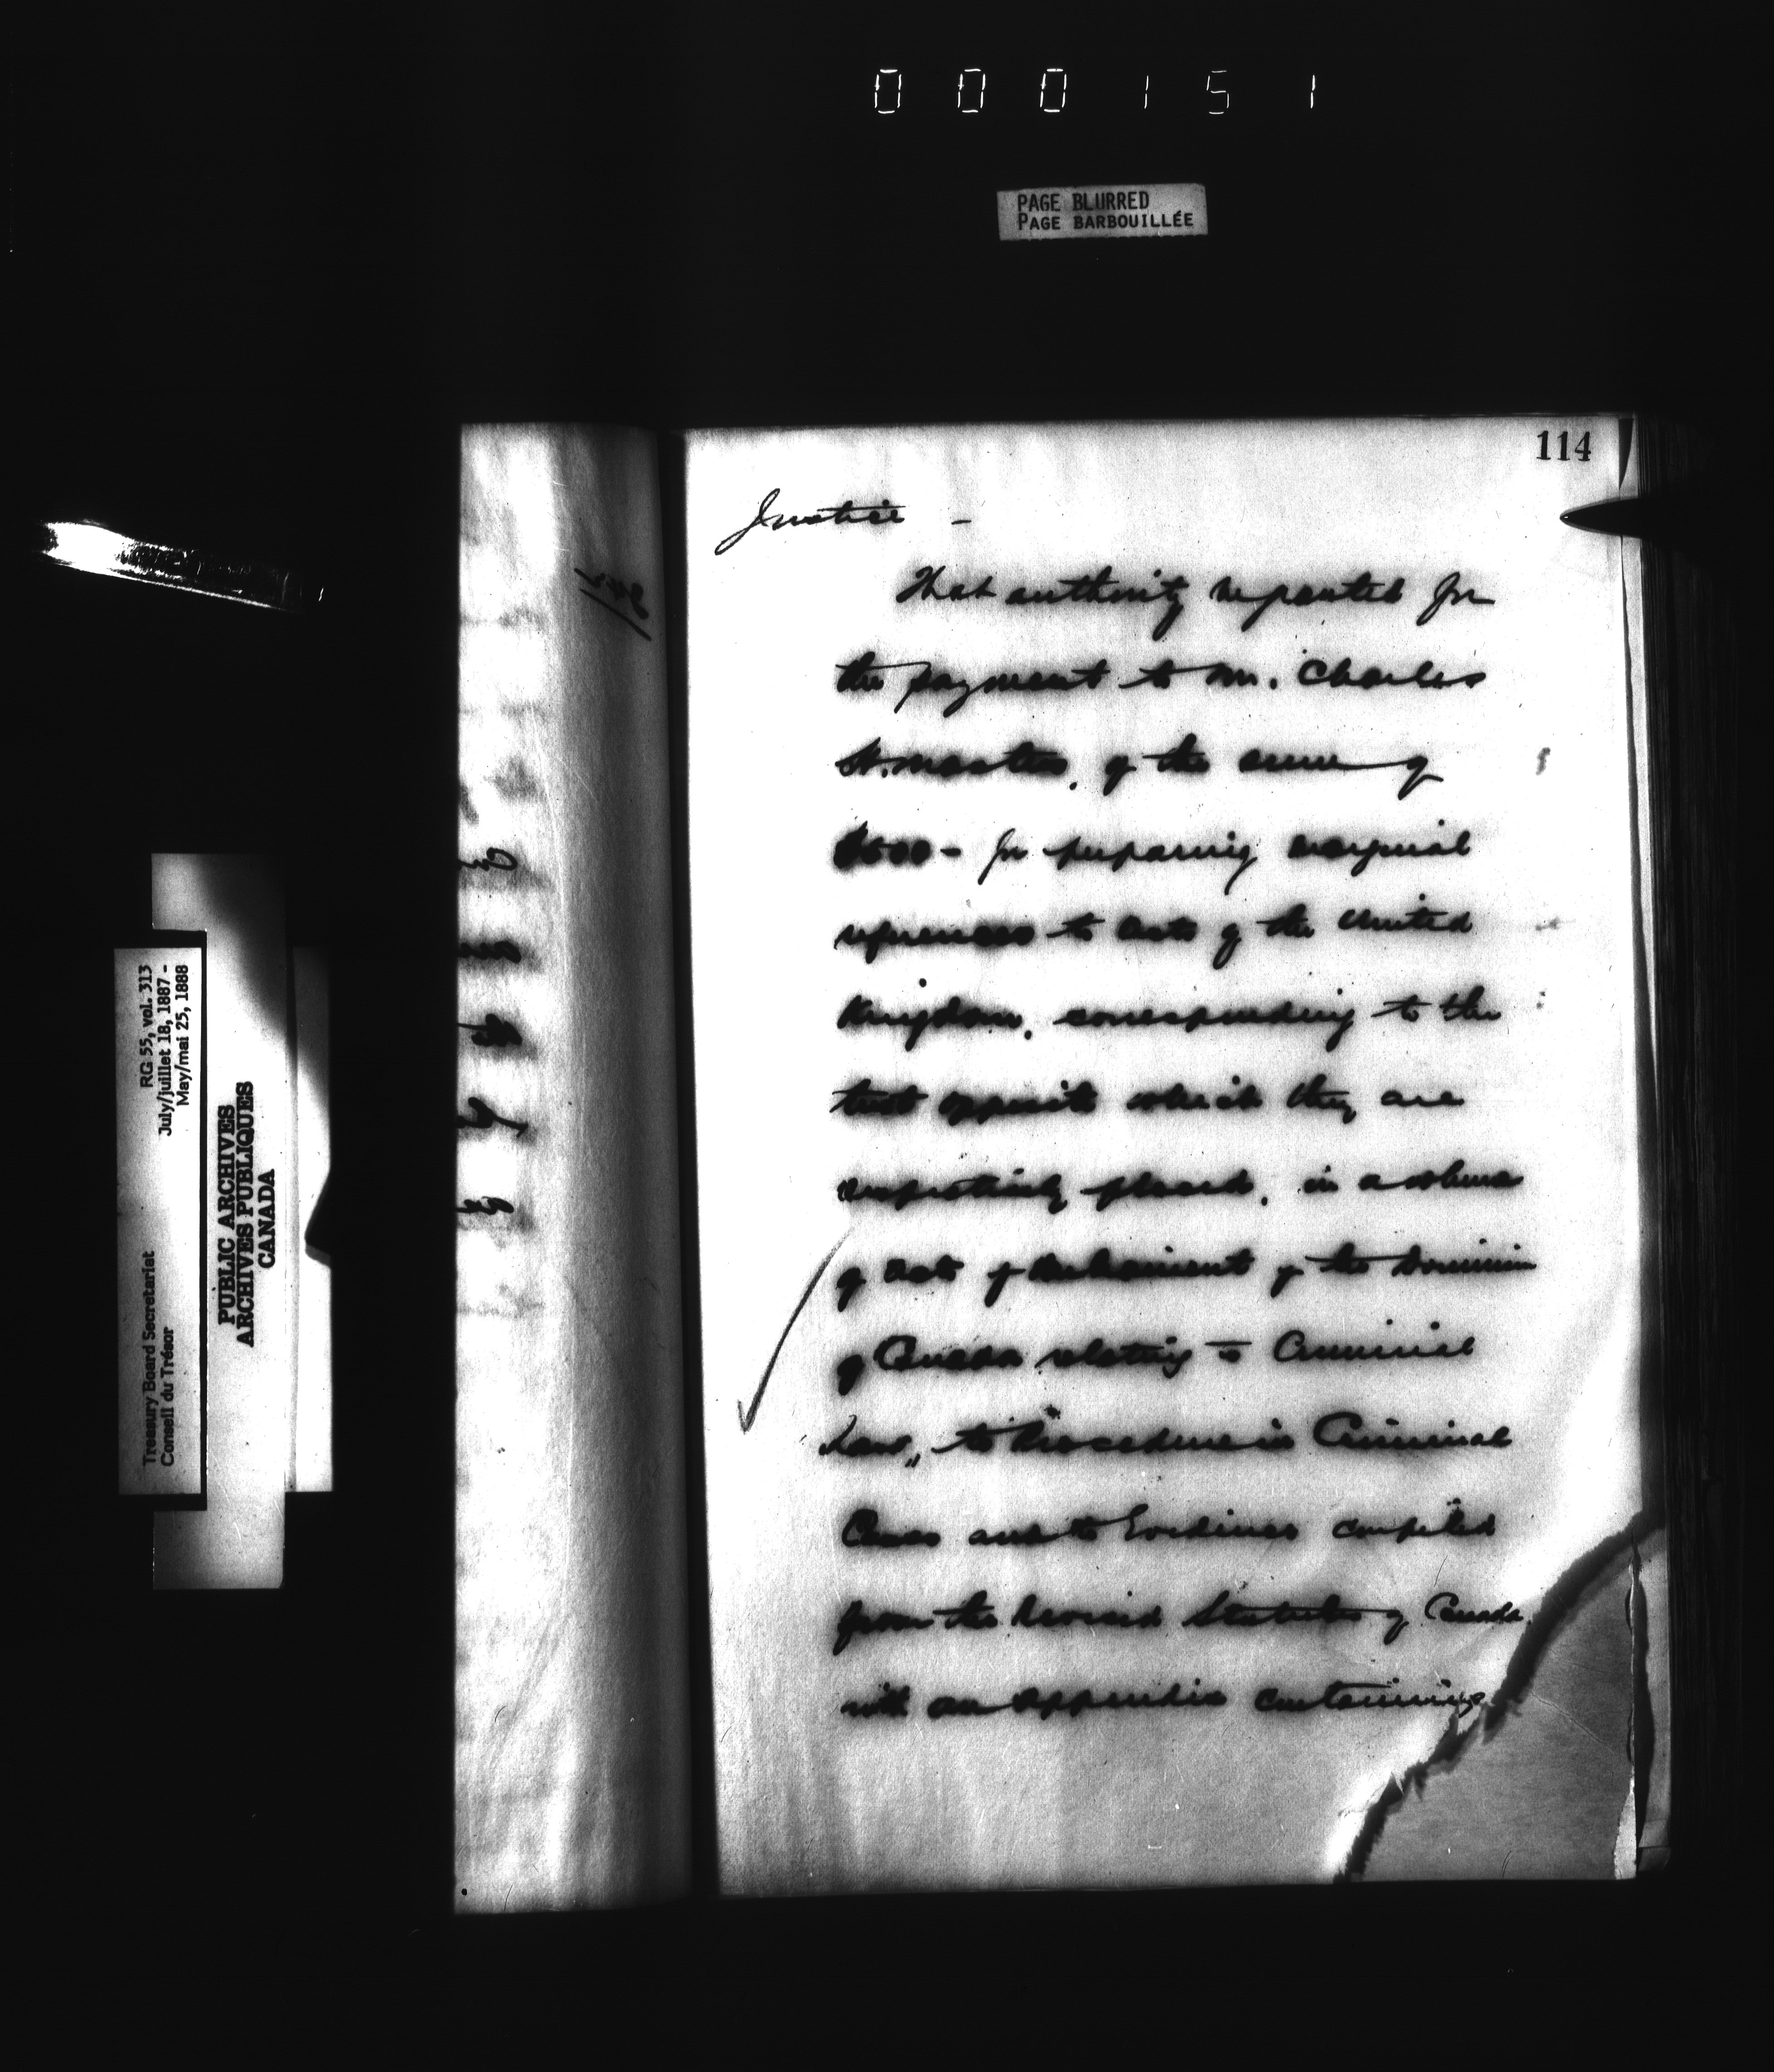 000151
PAGE BLURRED
PAGE BARBOUILLÉE
114
Justice -
That authority requested for
the payment to Mr. Charles
of the sum of
for preparing marginal
references to Acts of the United
Kingdom, corresponding to the
text opposite which they are
respectively placed, in a volume
of Acts of Parliament of the Dominion
of Canada relating to Criminal
Law, to Procedure in Criminal
Cases and to Evidence compiled
from the Revised Statutes of Canada
with an appendix containing
RG 55, vol. 313
July/juillet 18, 1887 -
May/mai 25, 1888
Treasury Board Secretariat
Conseil du Trésor
PUBLIC ARCHIVES
ARCHIVES PUBLIQUES
CANADA